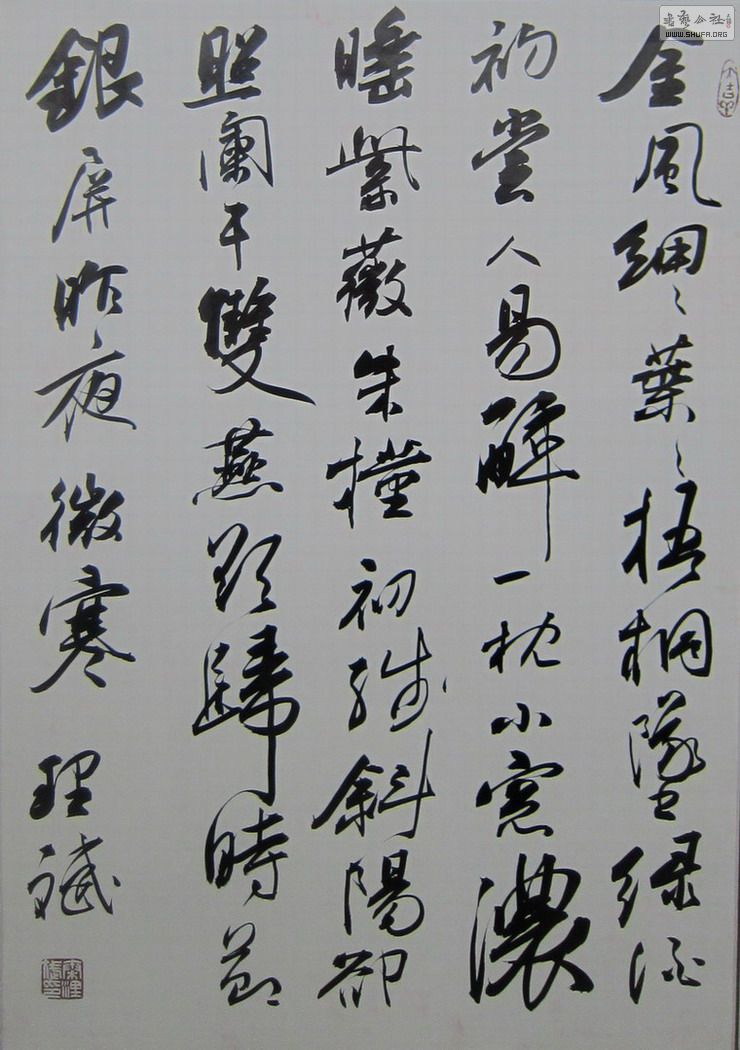 金風細〻葉〻梧桐墜緑酒
初嘗人易醉一枕小窓濃
睡紫薇朱槿初殘斜陽卻
照闌干雙燕欲歸時節
銀屏昨夜微寒 理斌
書藝公社
WWW.SHUFA.ORG